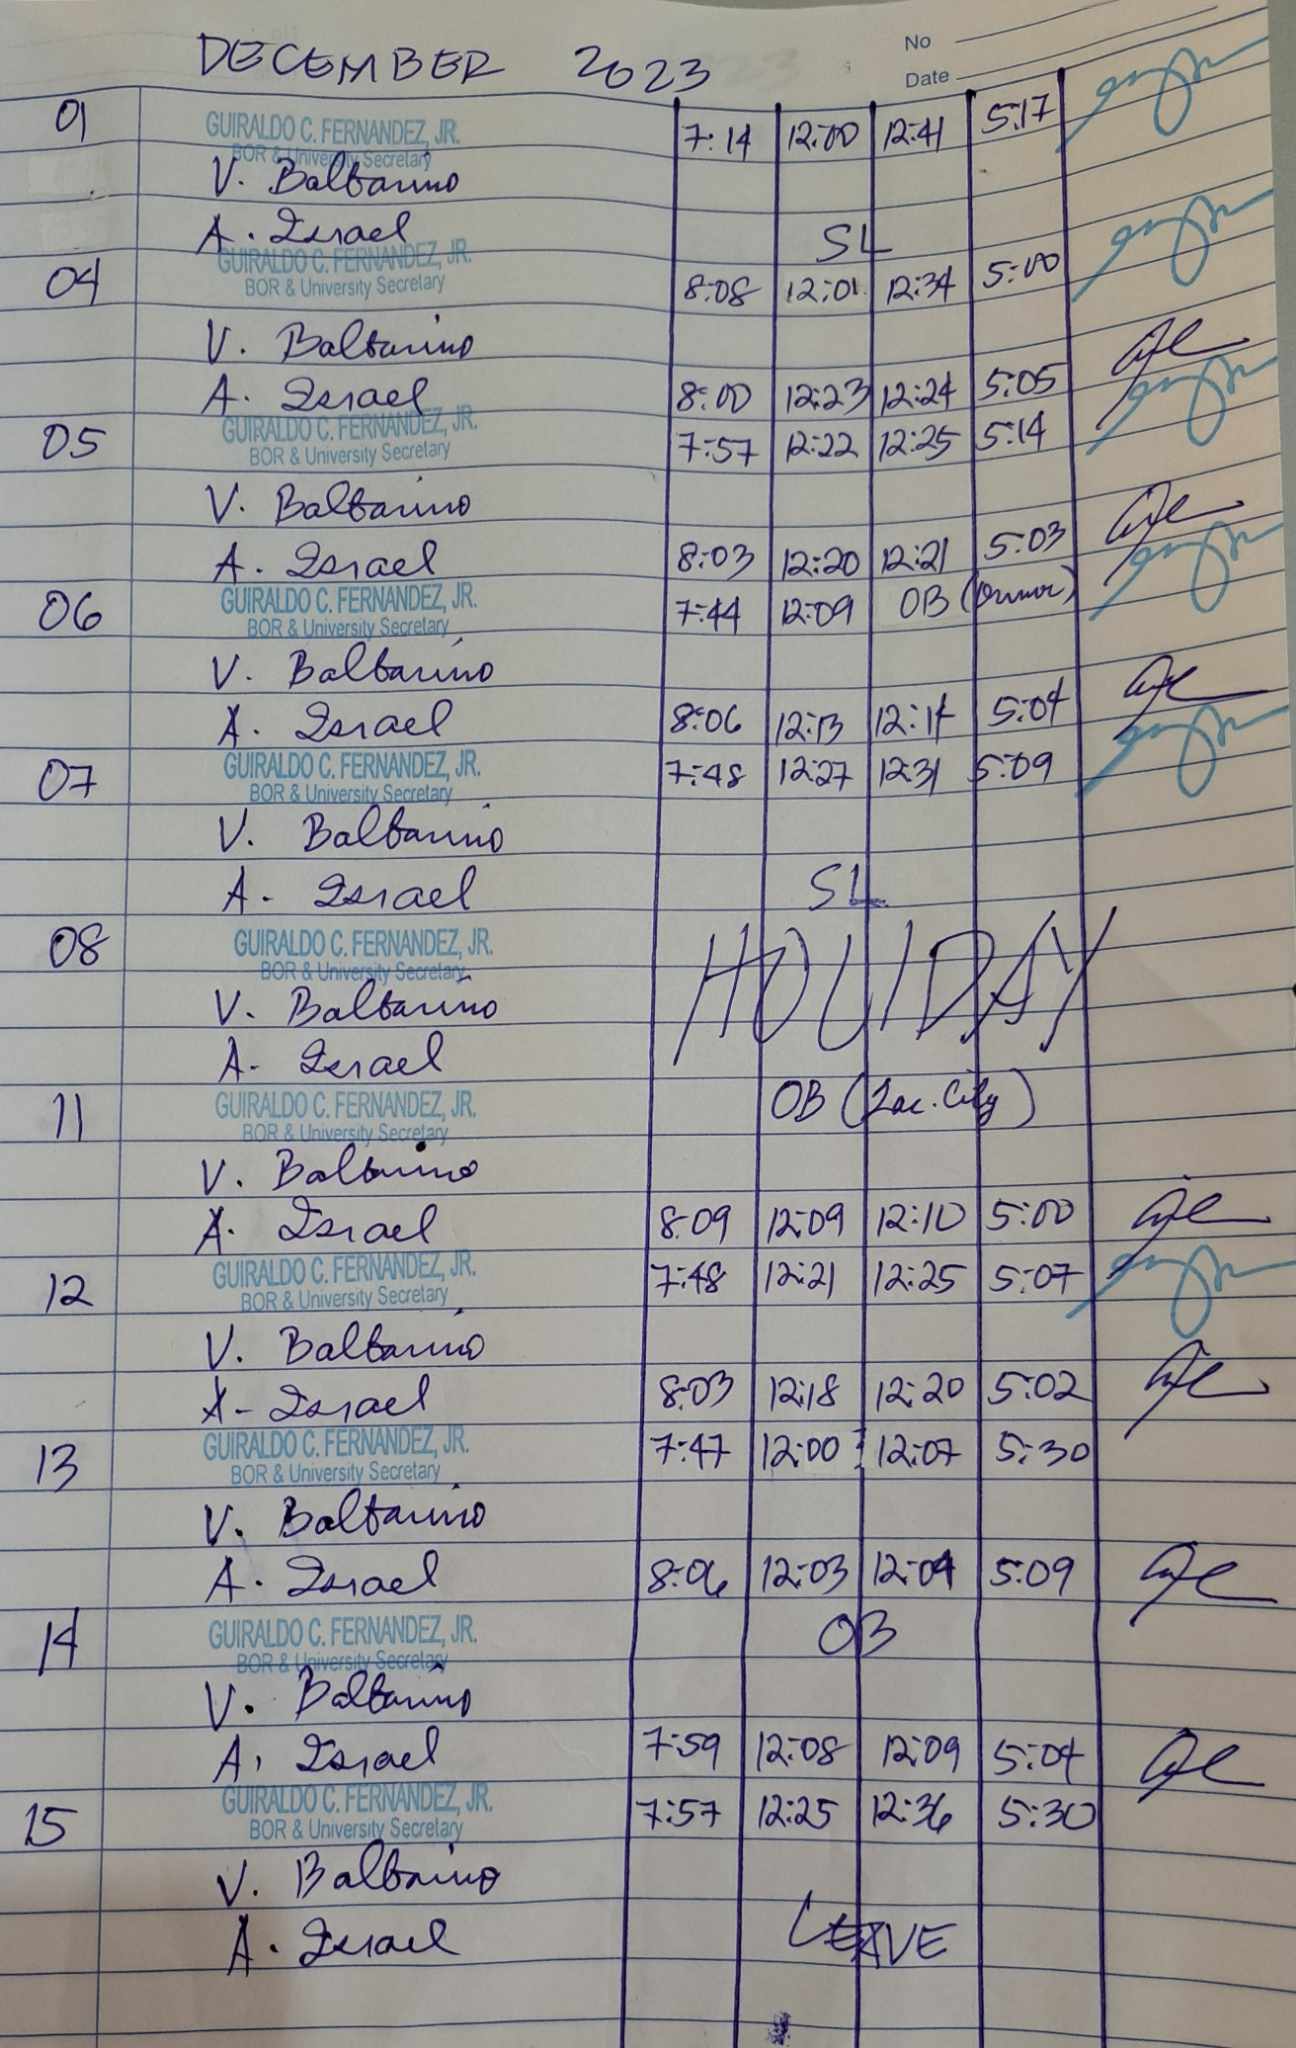 DECEMBER 2023
No
Date
01 GUIRALDO C. FERNANDEZ, JR. 7:14 12:00 12:41 5:17
BOR & University Secretary
V. Balbarino
A. Israel SL
GUIRALDO C. FERNANDEZ, JR.
04 BOR & University Secretary 8:08 12:01 12:34 5:00
V. Balbarino
A. Israel 8:00 12:23 12:24 5:05
05 GUIRALDO C. FERNANDEZ, JR. 7:57 12:22 12:25 5:14
BOR & University Secretary
V. Balbarino
A. Israel 8:03 12:20 12:21 5:03
06 GUIRALDO C. FERNANDEZ, JR. 7:44 12:09 OB (Ormoc)
BOR & University Secretary
V. Balbarino
A. Israel 8:06 12:13 12:14 5:04
07 GUIRALDO C. FERNANDEZ, JR. 7:48 12:27 12:31 5:09
BOR & University Secretary
V. Balbarino
A. Israel SL
08 GUIRALDO C. FERNANDEZ, JR.
BOR & University Secretary
V. Balbarino HOLIDAY
A. Israel
11 GUIRALDO C. FERNANDEZ, JR. OB (Tac. City)
BOR & University Secretary
V. Balbarino
A. Israel 8:09 12:09 12:10 5:00
12 GUIRALDO C. FERNANDEZ, JR. 7:48 12:21 12:25 5:07
BOR & University Secretary
V. Balbarino
A. Israel 8:03 12:18 12:20 5:02
13 GUIRALDO C. FERNANDEZ, JR. 7:47 12:00 12:07 5:30
BOR & University Secretary
V. Balbarino
A. Israel 8:06 12:03 12:04 5:09
14 GUIRALDO C. FERNANDEZ, JR. OB
BOR & University Secretary
V. Balbarino
A. Israel 7:59 12:08 12:09 5:04
15 GUIRALDO C. FERNANDEZ, JR. 7:57 12:25 12:36 5:30
BOR & University Secretary
V. Balbarino
A. Israel LEAVE